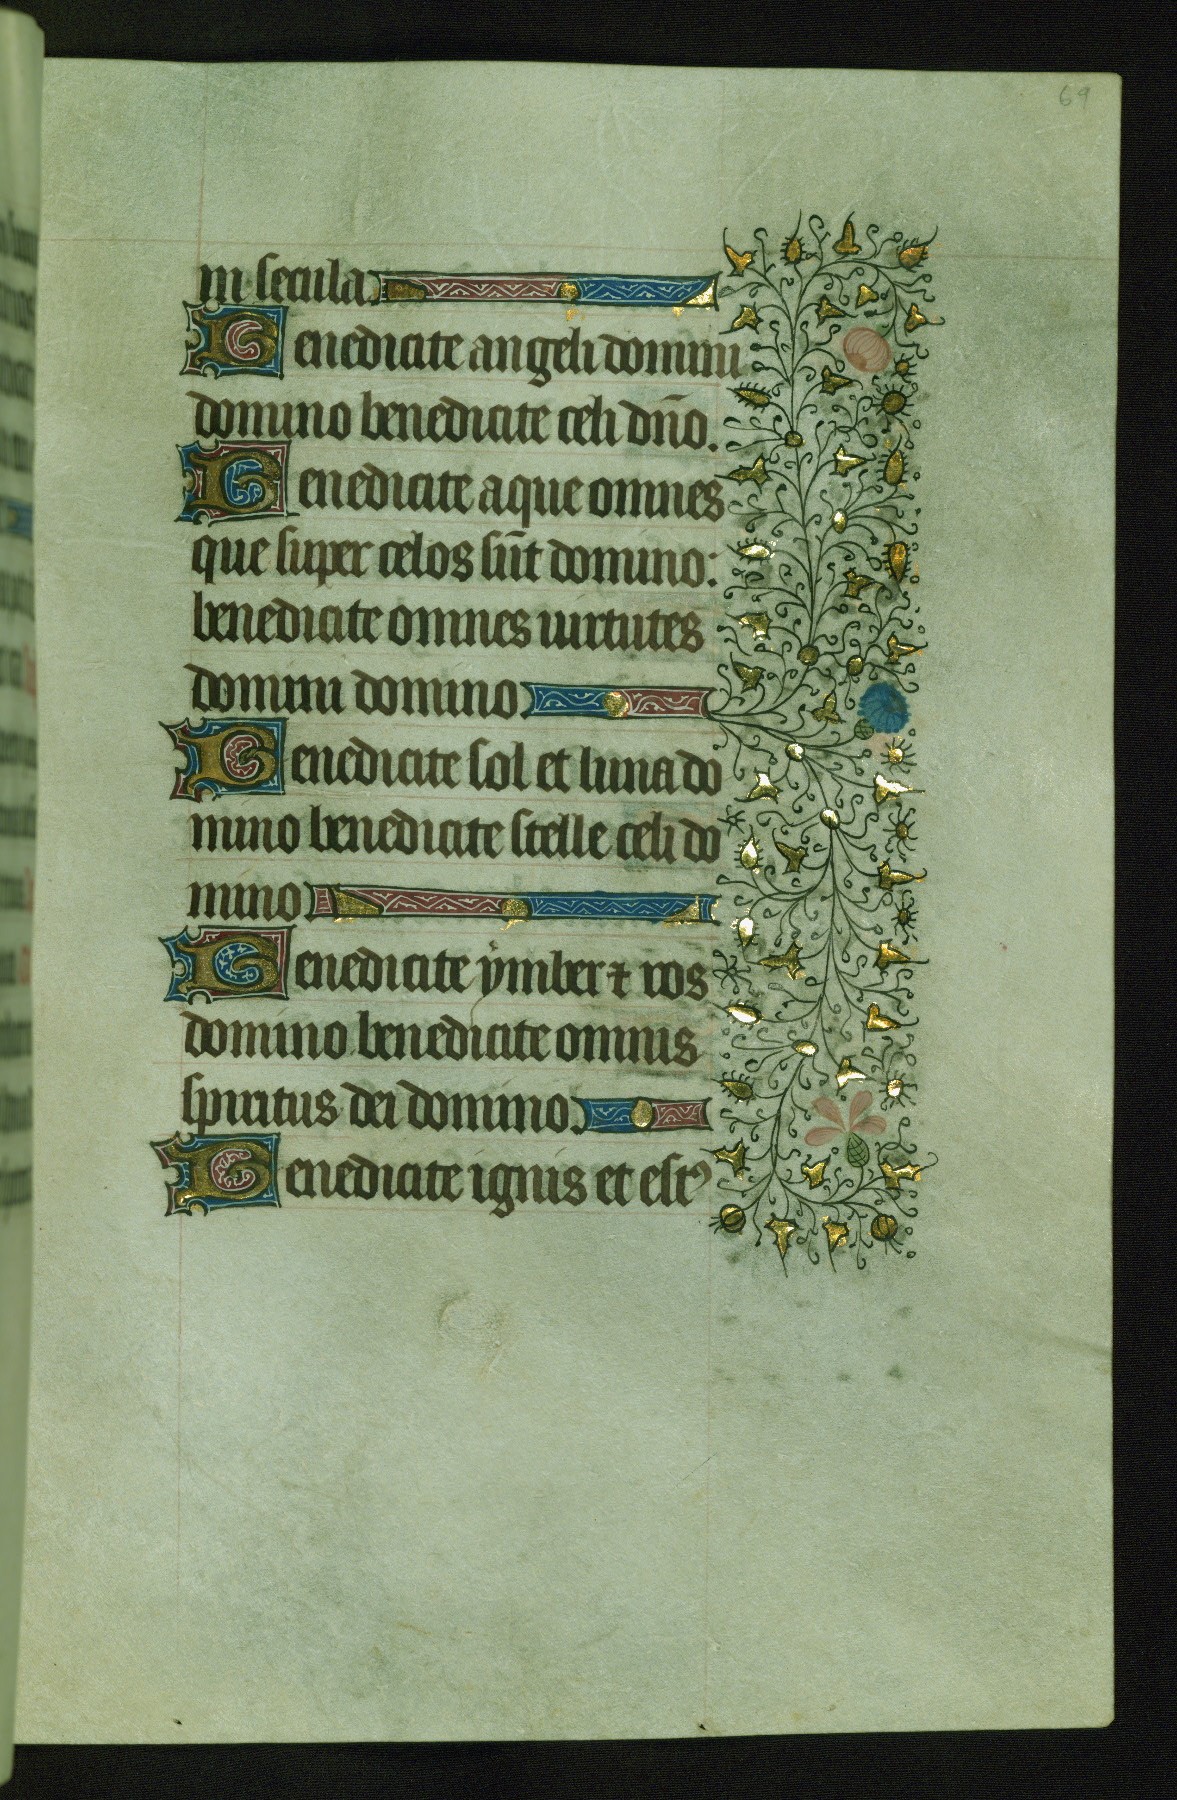 69
in secula.
Benedicite angeli domini
domino benedicite celi dño.
Benedicite aque omnes
que super celos sūt domino:
benedicite omnes uirtutes
domini domino
Benedicite sol et luna do
mino benedicite stelle celi do
mino
Benedicite ymber ⁊ ros
domino benedicite omnis
spiritus dei domino.
Benedicite ignis et estꝰ